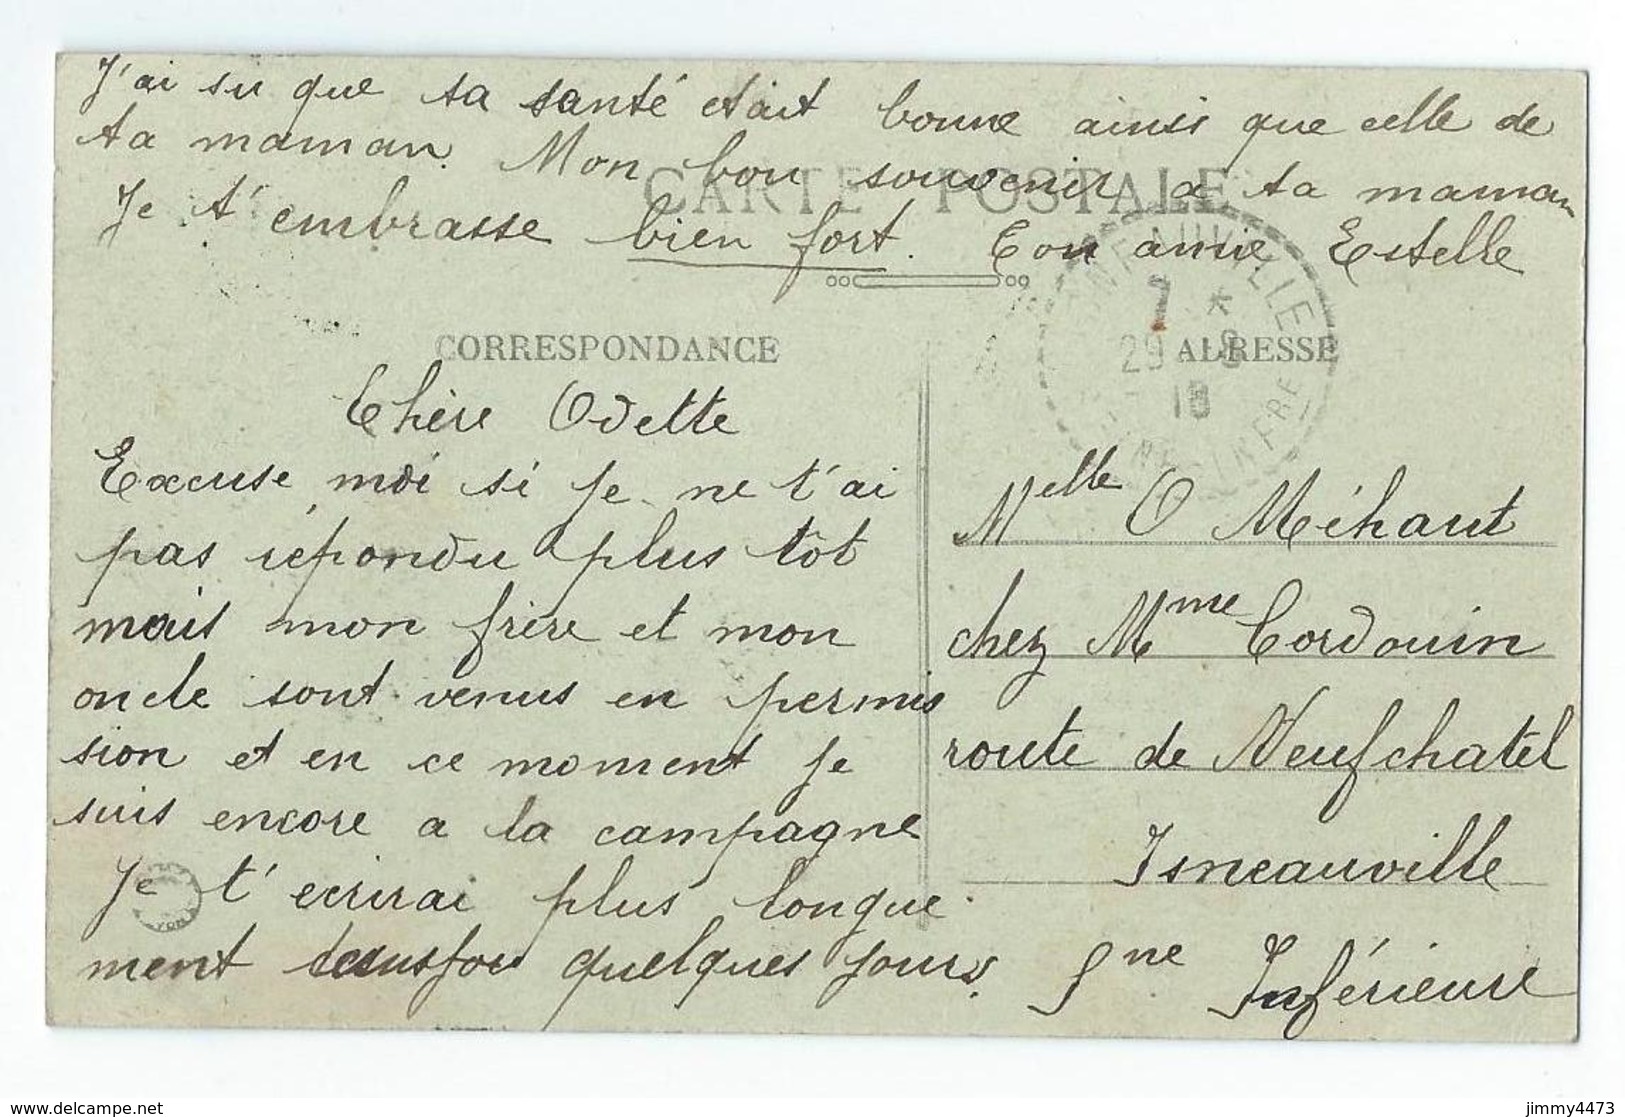 J'ai su que ta santé etait bonne ainsi que celle de
ta maman. Mon bon souvenir a ta maman
Je t'embrasse bien fort. Ton amie Estelle
CARTE POSTALE
CORRESPONDANCE
Chère Odette
Excuse moi si je ne t'ai
pas répondu plus tôt
mais mon frère et mon
oncle sont venus en permis
sion et en ce moment je
suis encore a la campagne
Je t'ecrirai plus longue
ment quelques jours.
ADRESSE
7 *
29 - 8
18
INFRE
Melle O Méhaut
chez Mme Cordouin
route de Neufchatel
Isneauville
Sne Inférieure
jimmy4473